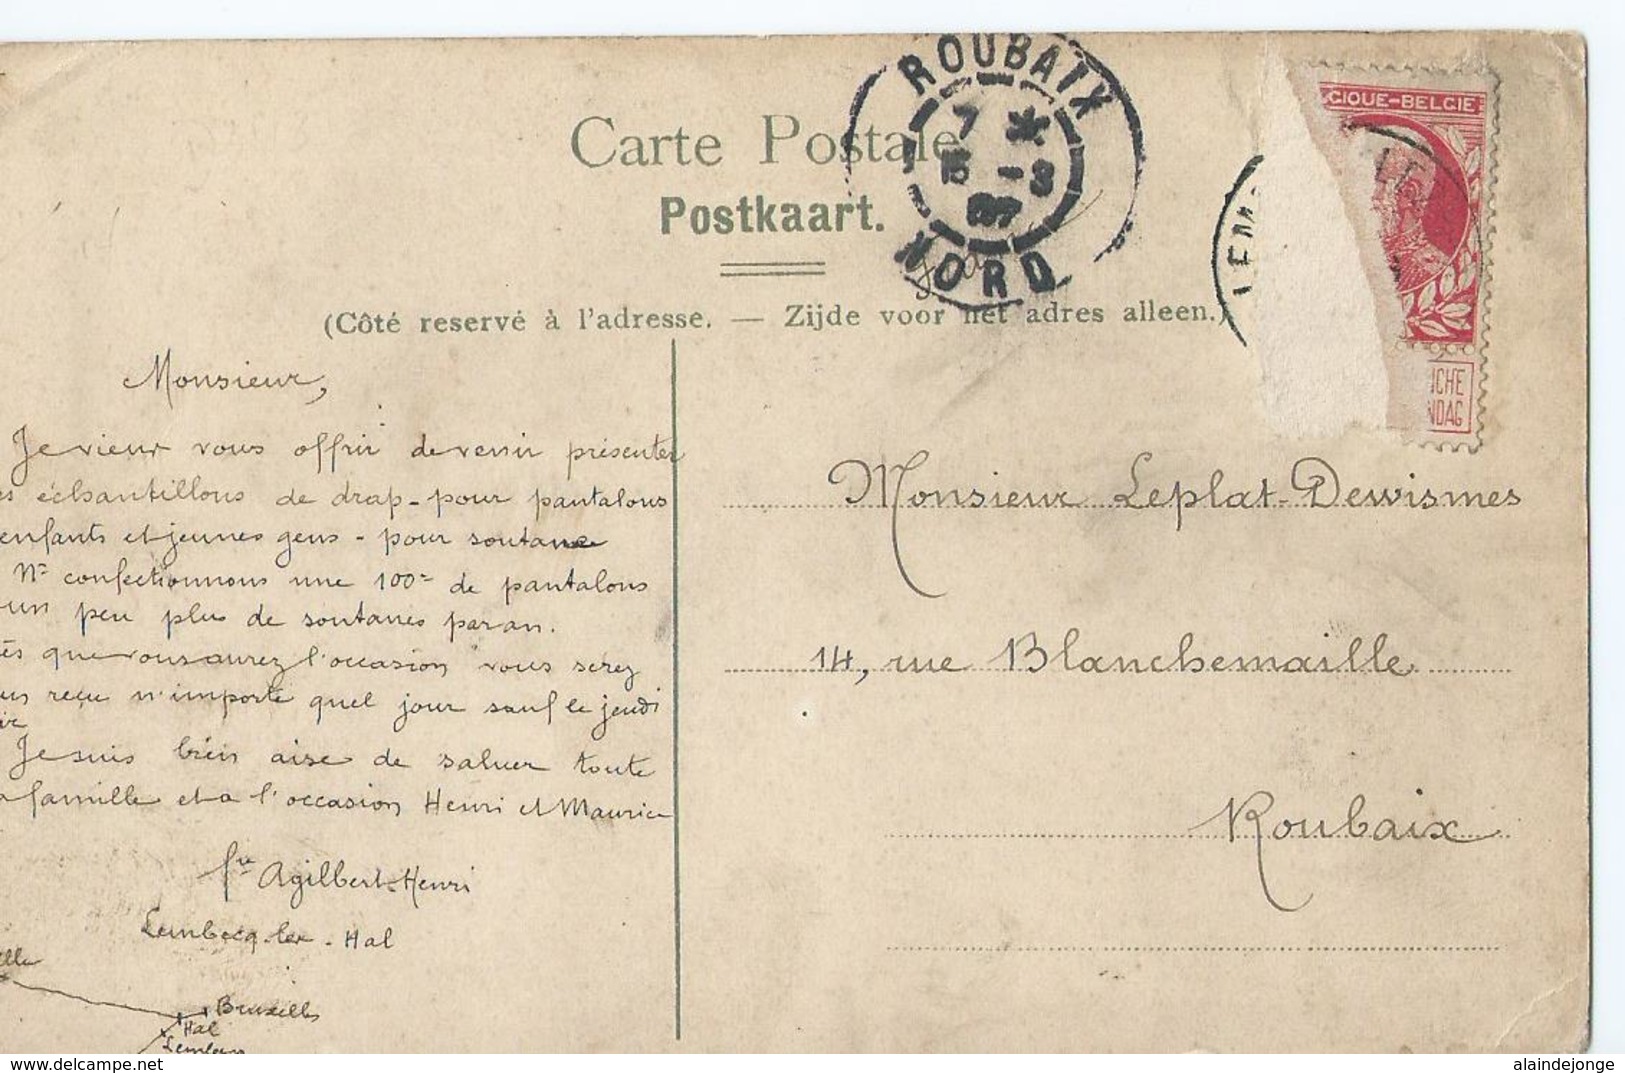 Carte Postale
Postkaart.
(Côté reservé à l'adresse. — Zijde voor het adres alleen.)
ROUBAIX
7
15 -3
07
NORD
GIQUE-BELGIE
LEM
NCHE
NDAG
Monsieur,
Je viens vous offrir de venir présenter
es échantillons de drap-pour pantalons
enfants et jeunes gens - pour soutane
Ns confectionnons une 100e de pantalons
un peu plus de soutanes par an.
ès que vous aurez l'occasion vous serez
us reçu n'importe quel jour sauf le jeudi
Je suis bien aise de saluer toute
a famille et a l'occasion Henri et Maurice
fre Agilbert-Henri
Lembecq-lez-Hal
ille
Bruxelles
Hal
Lembecq
Monsieur Leplat-Dewismes
14, rue Blanchemaille
Roubaix
www.delcampe.net
alaindejonge